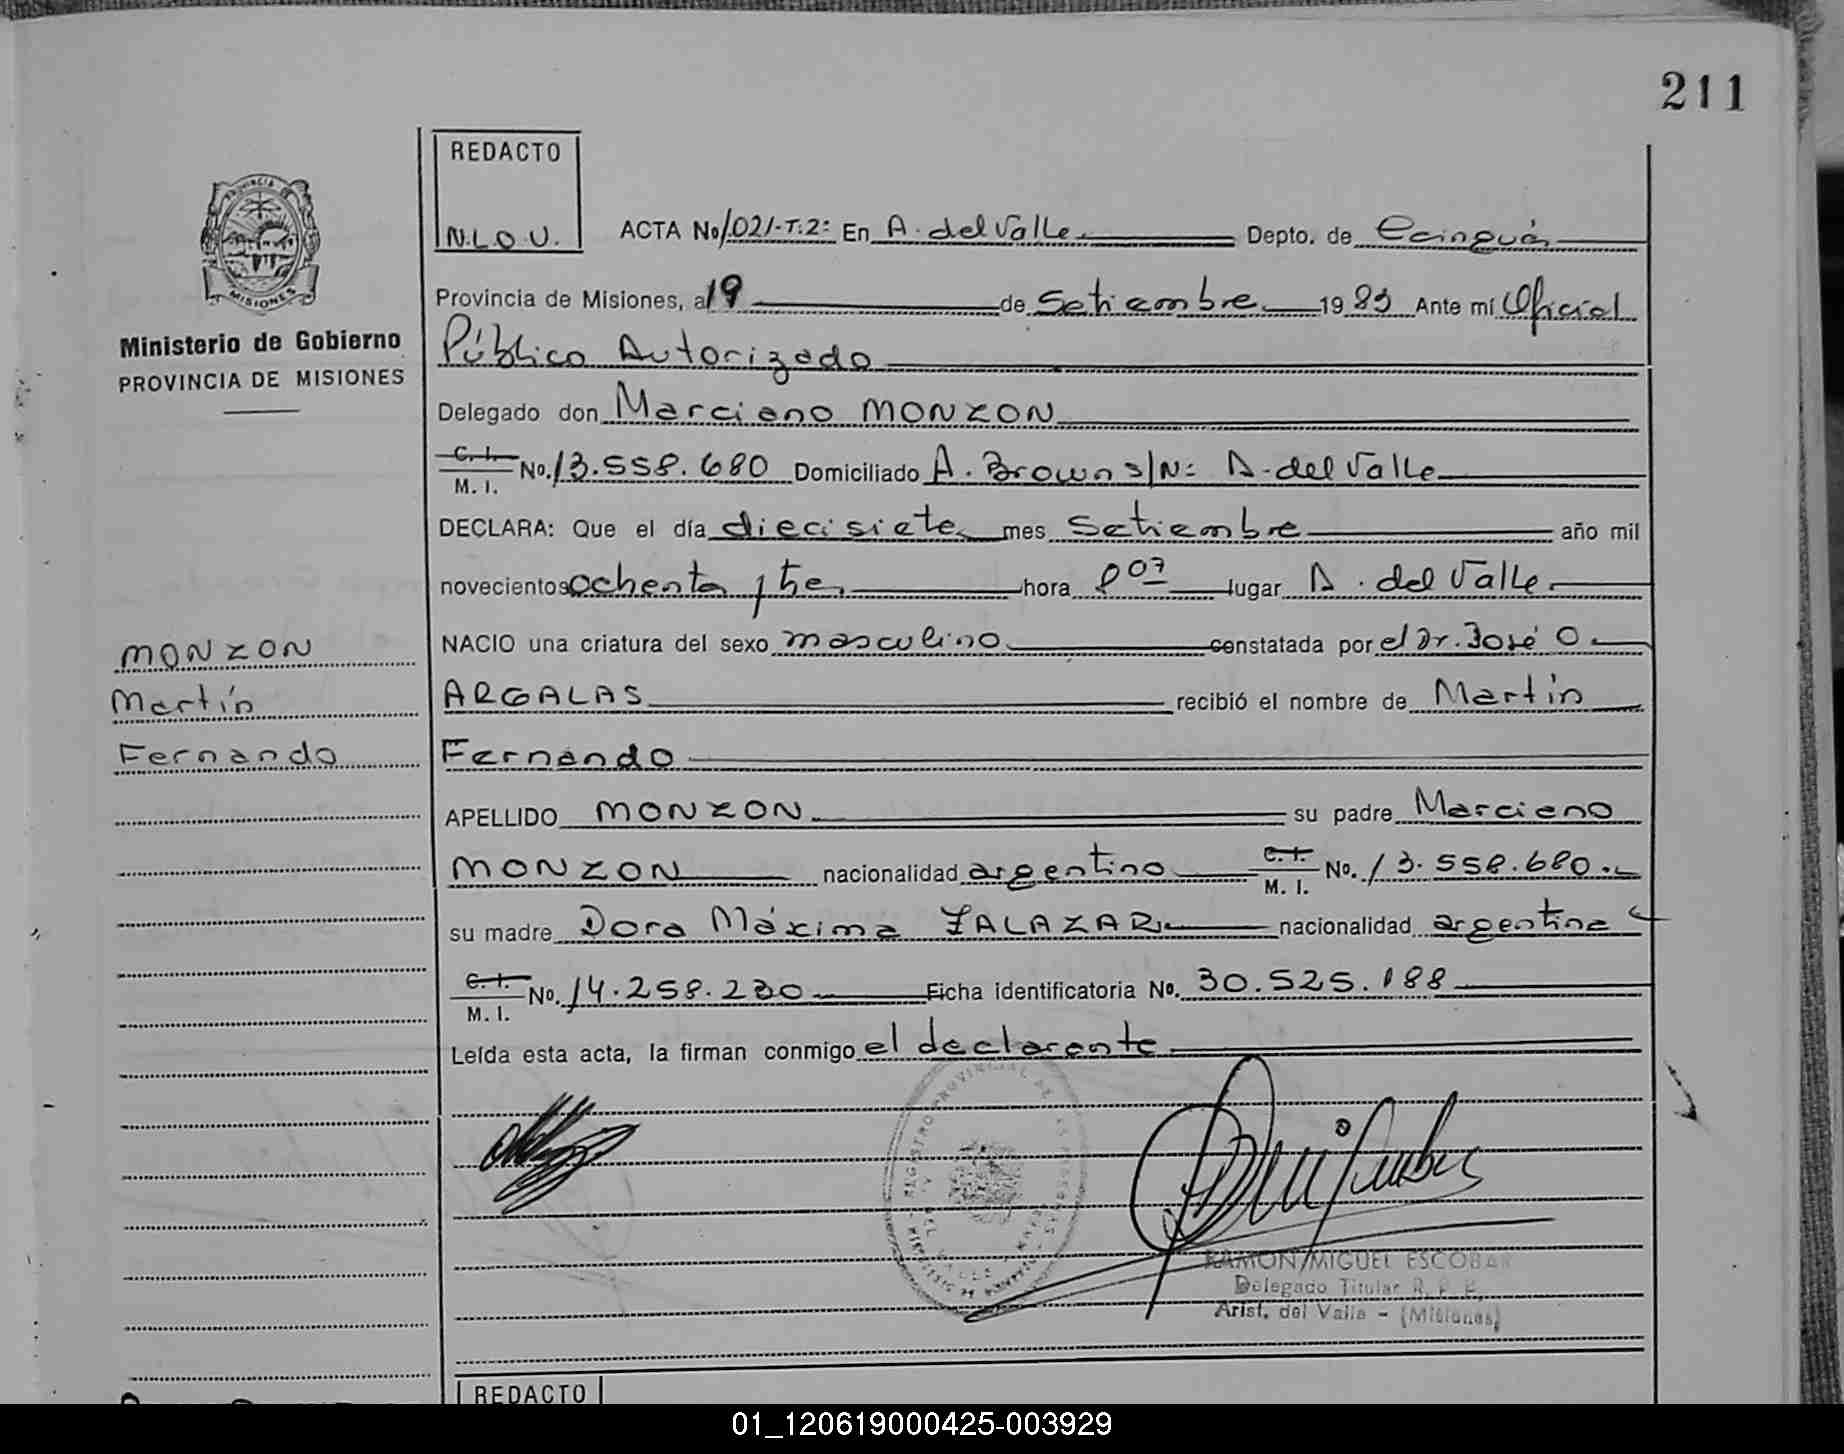 211
REDACTO
N.L.O.U.
ACTA No 1.021-T.2: En A. del Valle Depto. de Cainguás
PROVINCIA DE MISIONES
Provincia de Misiones, a 19 de Setiembre 1983 Ante mí Oficial
Público Autorizado
Ministerio de Gobierno
PROVINCIA DE MISIONES
Delegado don Marciano MONZON
C. I. M. I. No. 13.558.680 Domiciliado A. Brown s/Nº A. del Valle
DECLARA: Que el día diecisiete mes Setiembre año mil
novecientos ochenta y tres hora 8 07 lugar A. del Valle
MONZON
NACIO una criatura del sexo masculino constatada por el Dr. José O.
Martín
ARGALAS recibió el nombre de Martín
Fernando
Fernando
APELLIDO MONZON su padre Marciano
MONZON nacionalidad argentino C. I. M. I. No. 13.558.680.
su madre Dora Máxima ZALAZAR nacionalidad argentina
C. I. M. I. No. 14.258.230 Ficha identificatoria No. 30.525.188
Leída esta acta, la firman conmigo el declarante
RAMON MIGUEL ESCOBAR
Delegado Titular R. P. P.
Arist. del Valle - (Misiones)
REDACTO
01_120619000425-003929